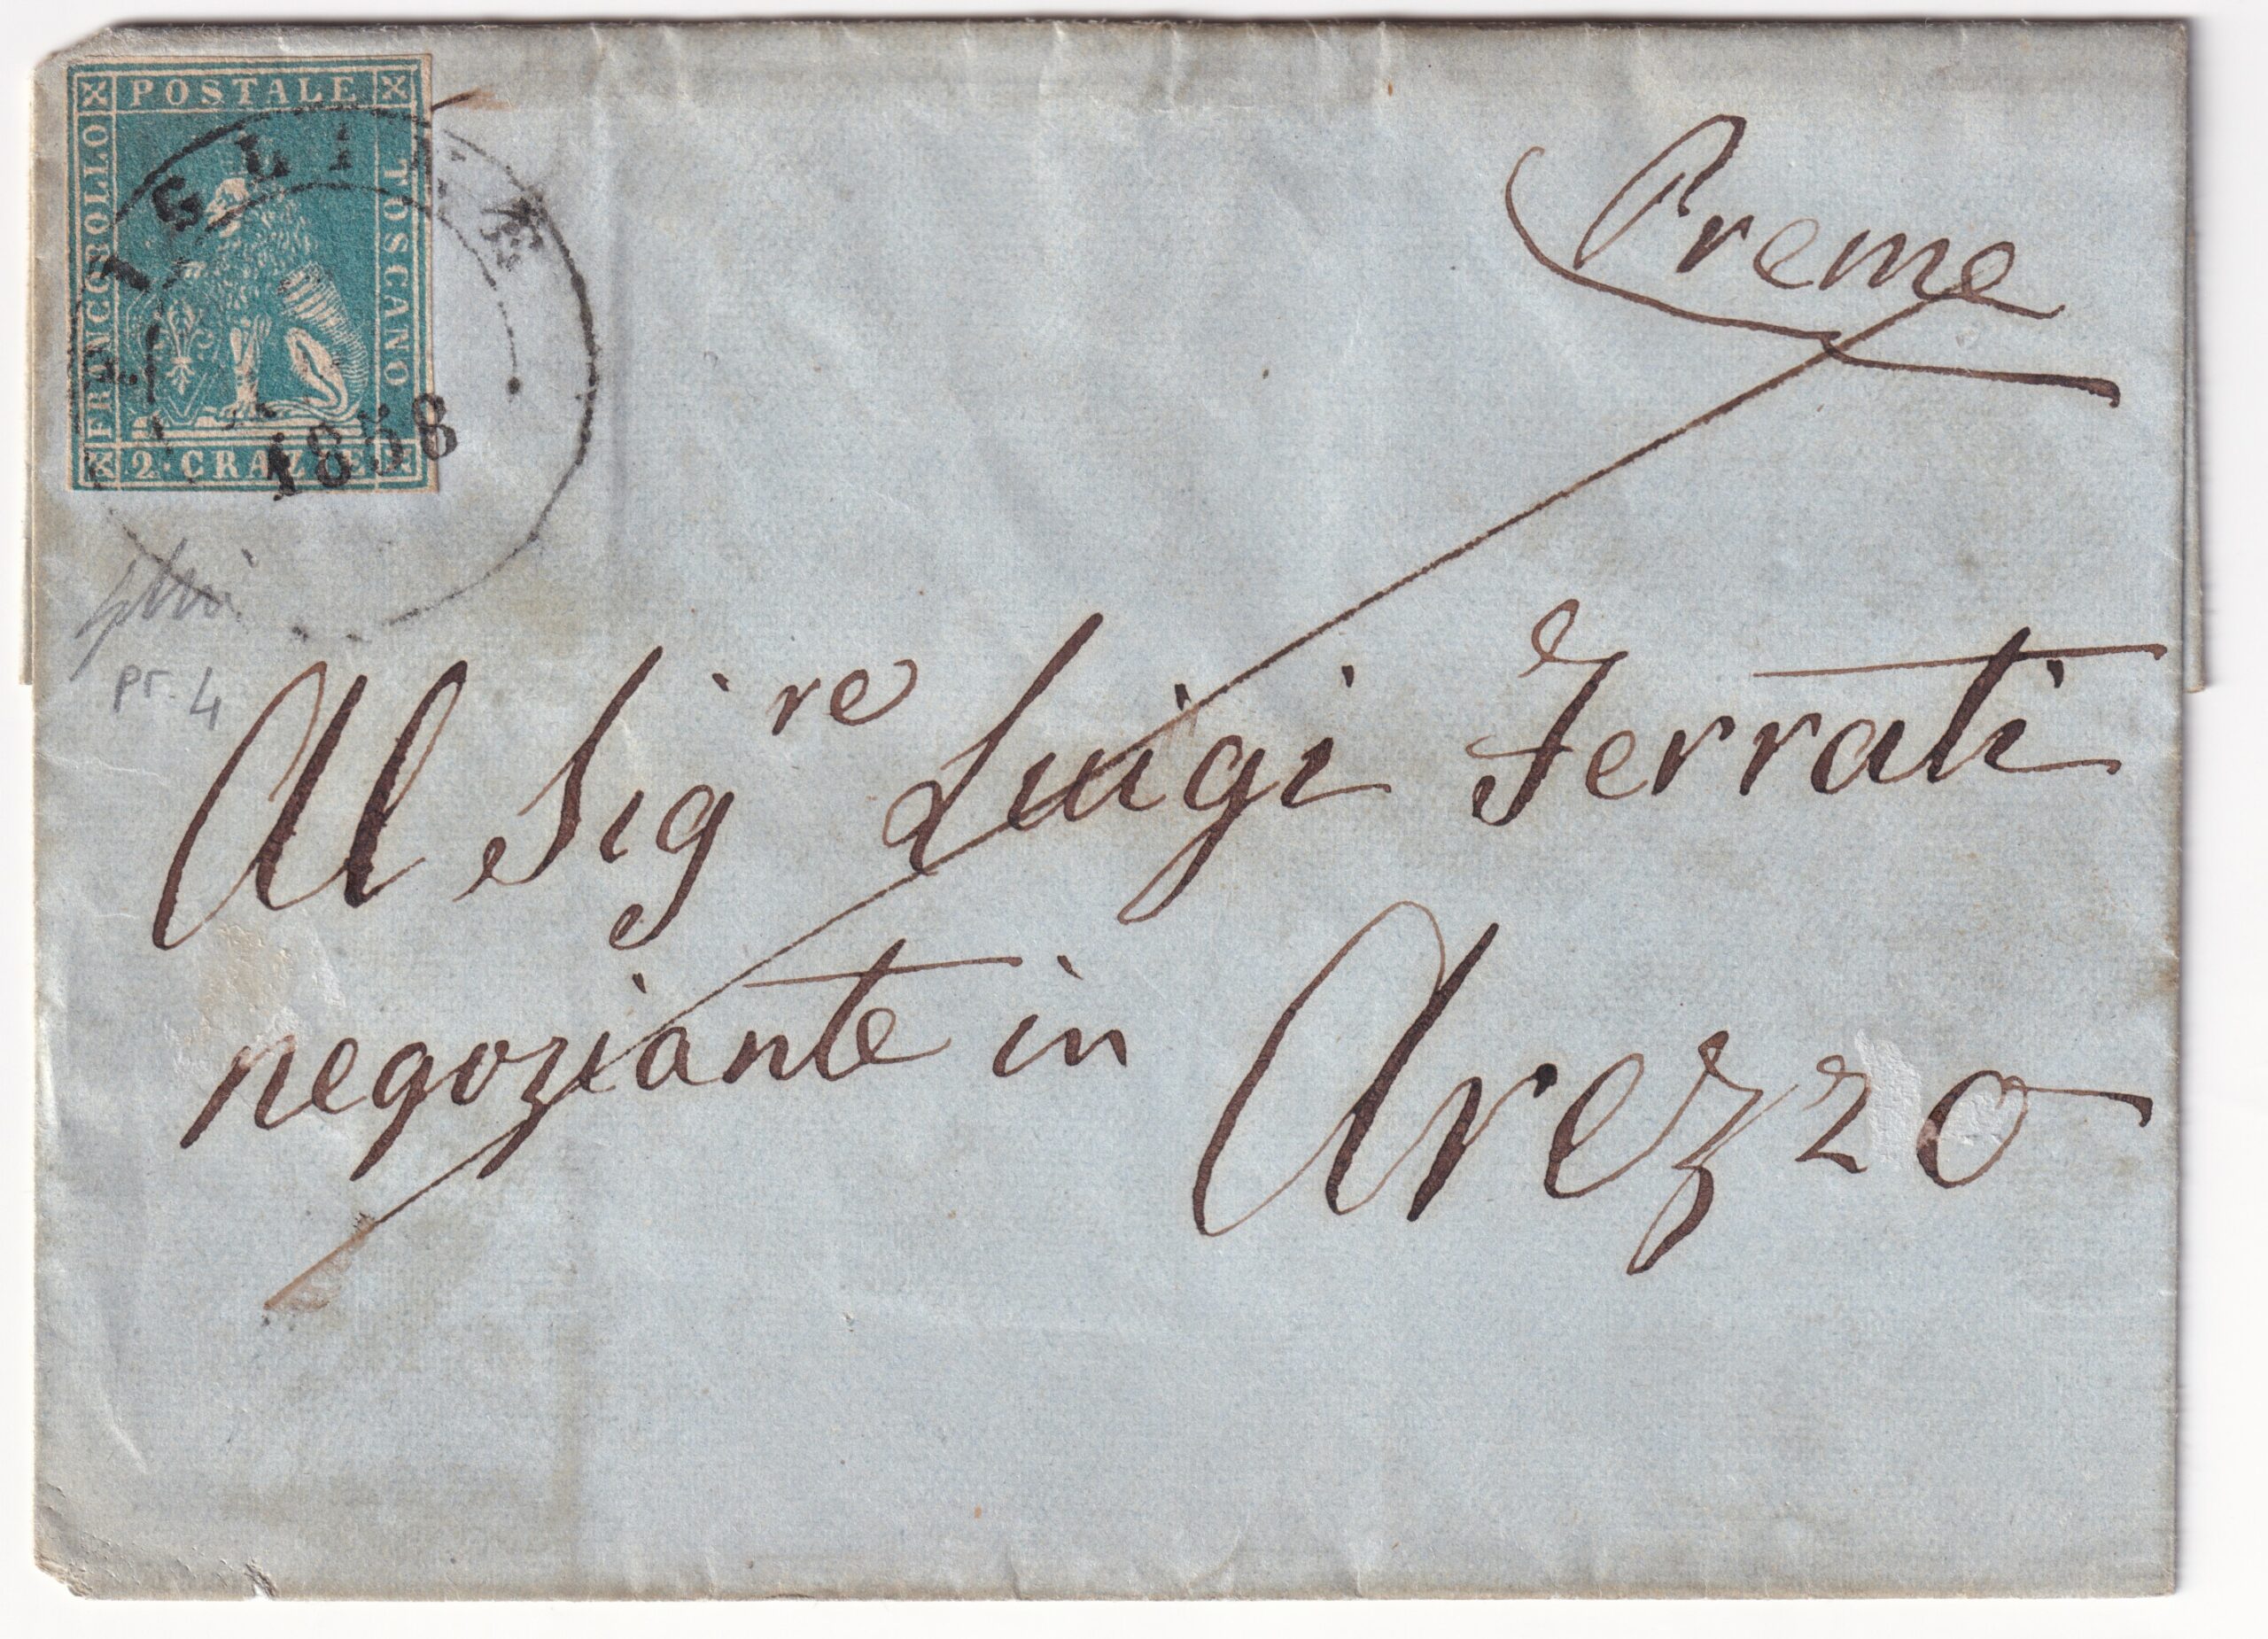 POSTALE
FRANCOBOLLO
TOSCANO
2·CRAZIE
FIGLINE
1858
Preme
pr. 4
Al Sig.re Luigi Ferrati
negoziante in Arezzo